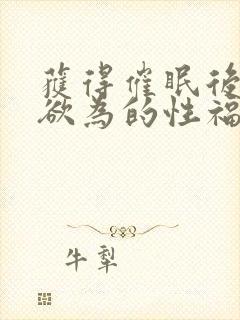 獲得催眠後
欲為的性福
牛犁